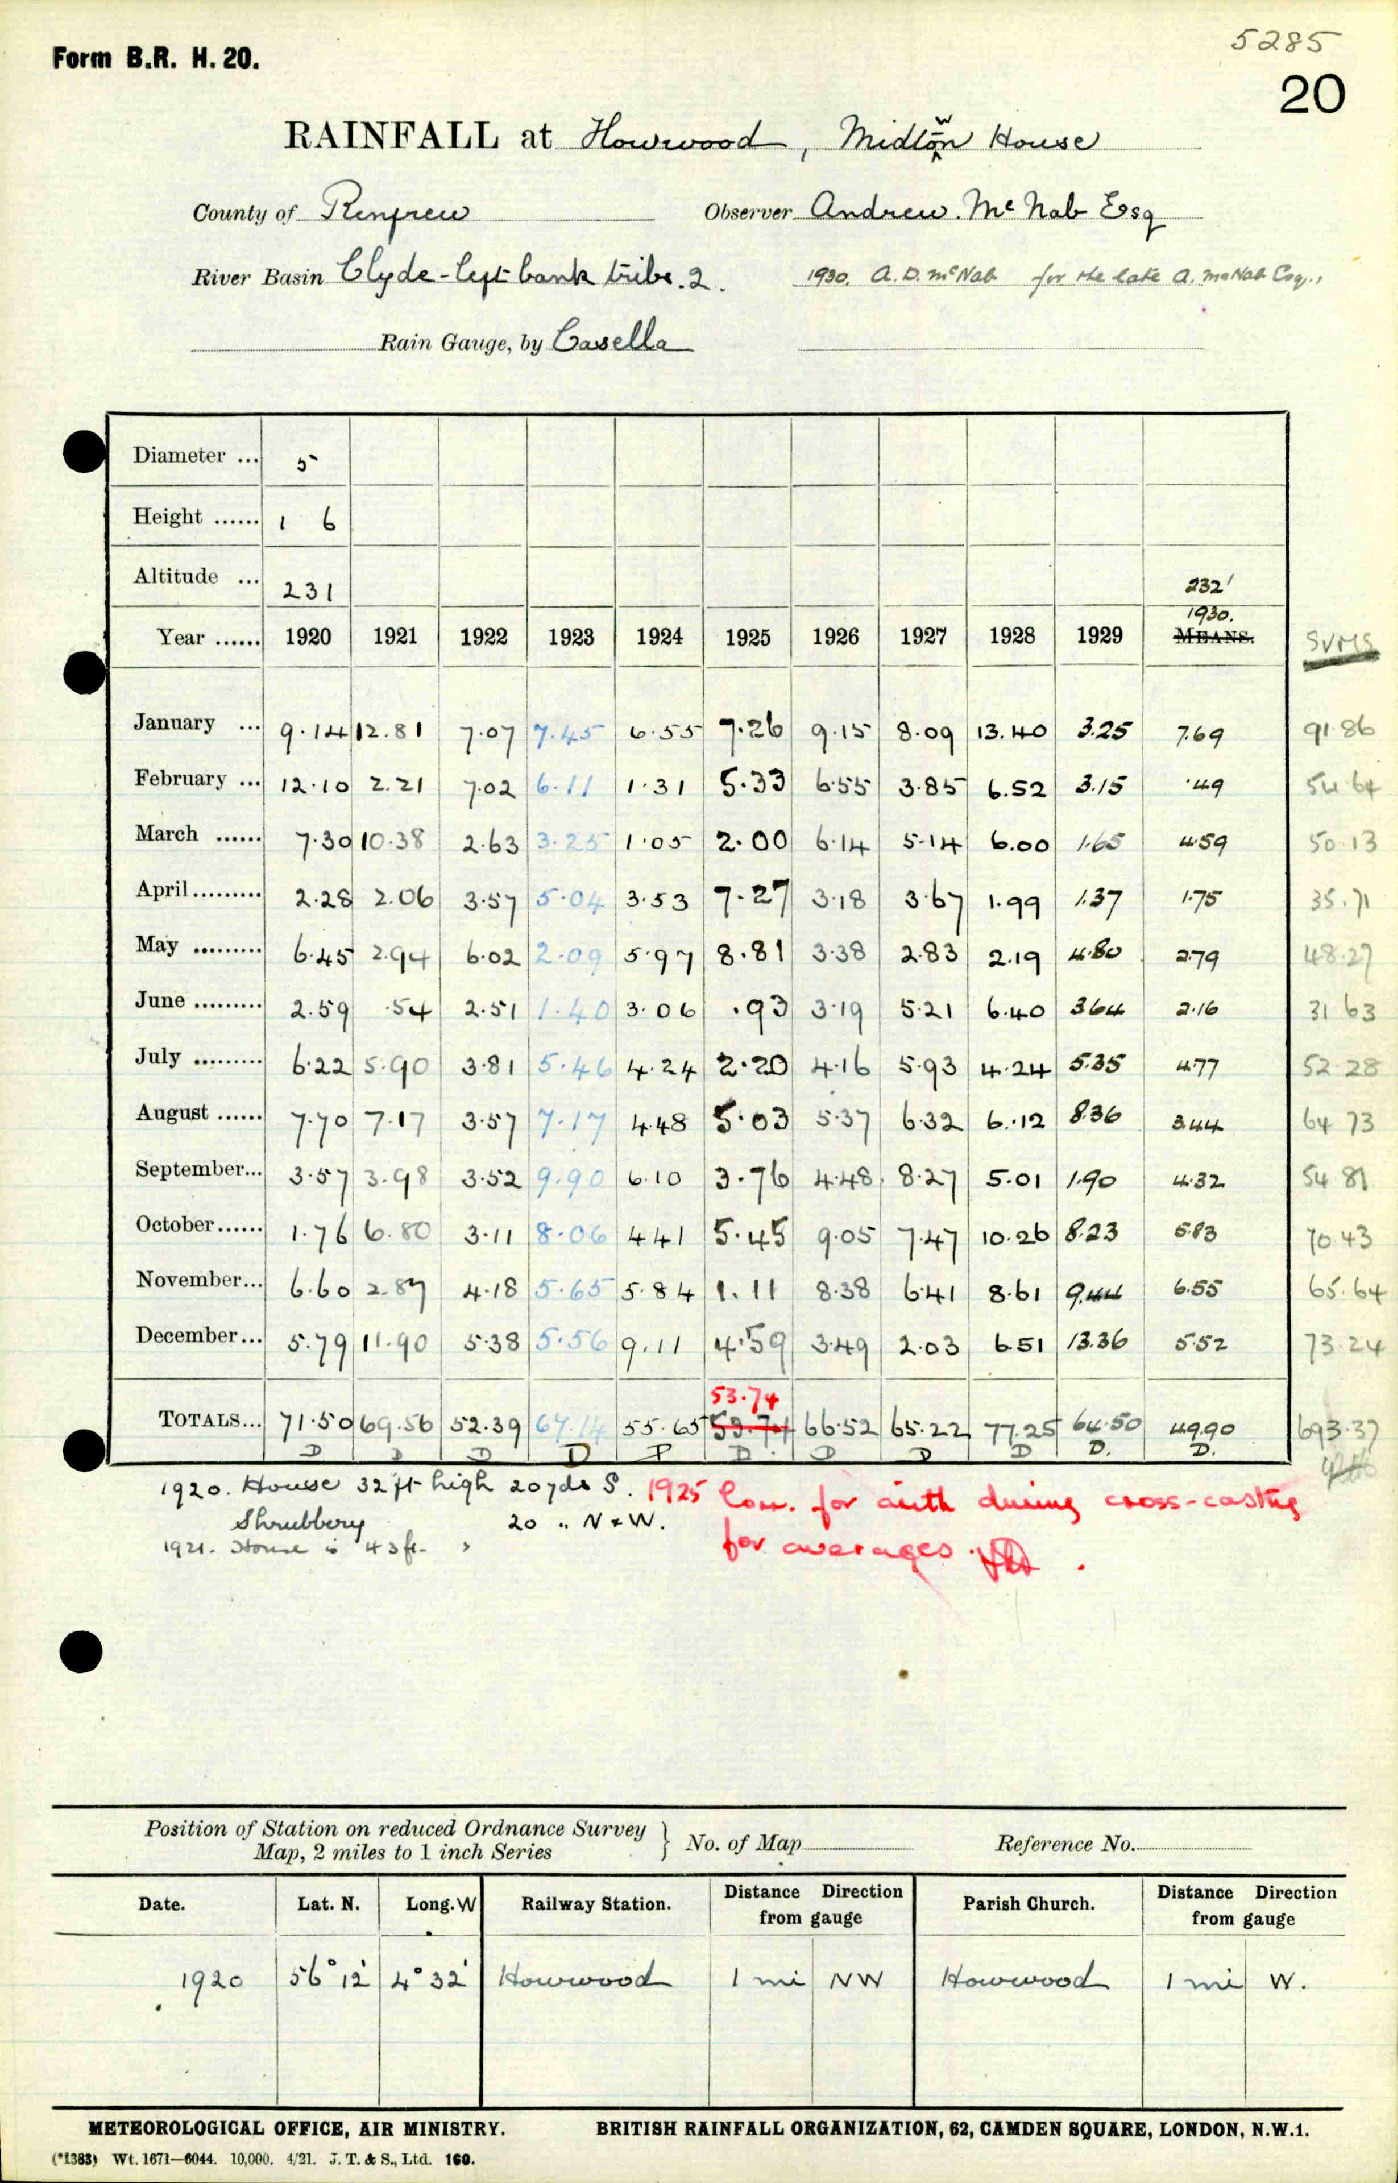 5285
Form B.R. H. 20.
20
RAINFALL at Howwood, Midton House
w
County of Renfrew Observer Andrew. Mc Nab Esq
River Basin Clyde - left bank tribs. 2. 1930. A. D. McNab for the late A. McNab Esq.,
Rain Gauge, by Casella
Diameter ... 5
Height ...... 1 6
Altitude ... 231 232'
1930.
Year ...... 1920 1921 1922 1923 1924 1925 1926 1927 1928 1929 MEANS. SVMS
January ... 9.14 12.81 7.07 7.45 6.55 7.26 9.15 8.09 13.40 3.25 7.69 91.86
February ... 12.10 2.21 7.02 6.11 1.31 5.33 6.55 3.85 6.52 3.15 .49 54.64
March ...... 7.30 10.38 2.63 3.25 1.05 2.00 6.14 5.14 6.00 1.65 4.59 50.13
April......... 2.28 2.06 3.57 5.04 3.53 7.27 3.18 3.67 1.99 1.37 1.75 35.71
May ......... 6.45 2.94 6.02 2.09 5.97 8.81 3.38 2.83 2.19 4.80 2.79 48.27
June ......... 2.59 .54 2.51 1.40 3.06 .93 3.19 5.21 6.40 3.64 2.16 31 63
July ......... 6.22 5.90 3.81 5.46 4.24 2.20 4.16 5.93 4.24 5.35 4.77 52 28
August ...... 7.70 7.17 3.57 7.17 4.48 5.03 5.37 6.32 6.12 8.36 3.44 64 73
September... 3.57 3.98 3.52 9.90 6.10 3.76 4.48 8.27 5.01 1.90 4.32 54 81
October...... 1.76 6.80 3.11 8.06 4.41 5.45 9.05 7.47 10.26 8.23 5.83 70.43
November... 6.60 2.87 4.18 5.65 5.84 1.11 8.38 6.41 8.61 9.44 6.55 65.64
December... 5.79 11.90 5.38 5.56 9.11 4.59 3.49 2.03 6.51 13.36 5.52 73.24
53.74
TOTALS... 71.50 69.56 52.39 67.14 55.65 53.74 66.52 65.22 77.25 64.50 49.90 693.37
D D D D P D. D D D D. D.
1920. House 32 ft high 20 yds S. 1925 Corr. for arith during cross-casting
Shrubbery 20 " N & W.
1921. House is 43 ft. "
for averages.
Position of Station on reduced Ordnance Survey
Map, 2 miles to 1 inch Series } No. of Map Reference No.
Date. Lat. N. Long. W Railway Station. Distance Direction from gauge Parish Church. Distance Direction from gauge
1920 56° 12' 4° 32' Howwood 1 mi NW Howwood 1 mi W.
METEOROLOGICAL OFFICE, AIR MINISTRY. BRITISH RAINFALL ORGANIZATION, 62, CAMDEN SQUARE, LONDON, N.W.1.
(*1383) Wt. 1671—6044. 10,000. 4/21. J. T. & S., Ltd. 160.